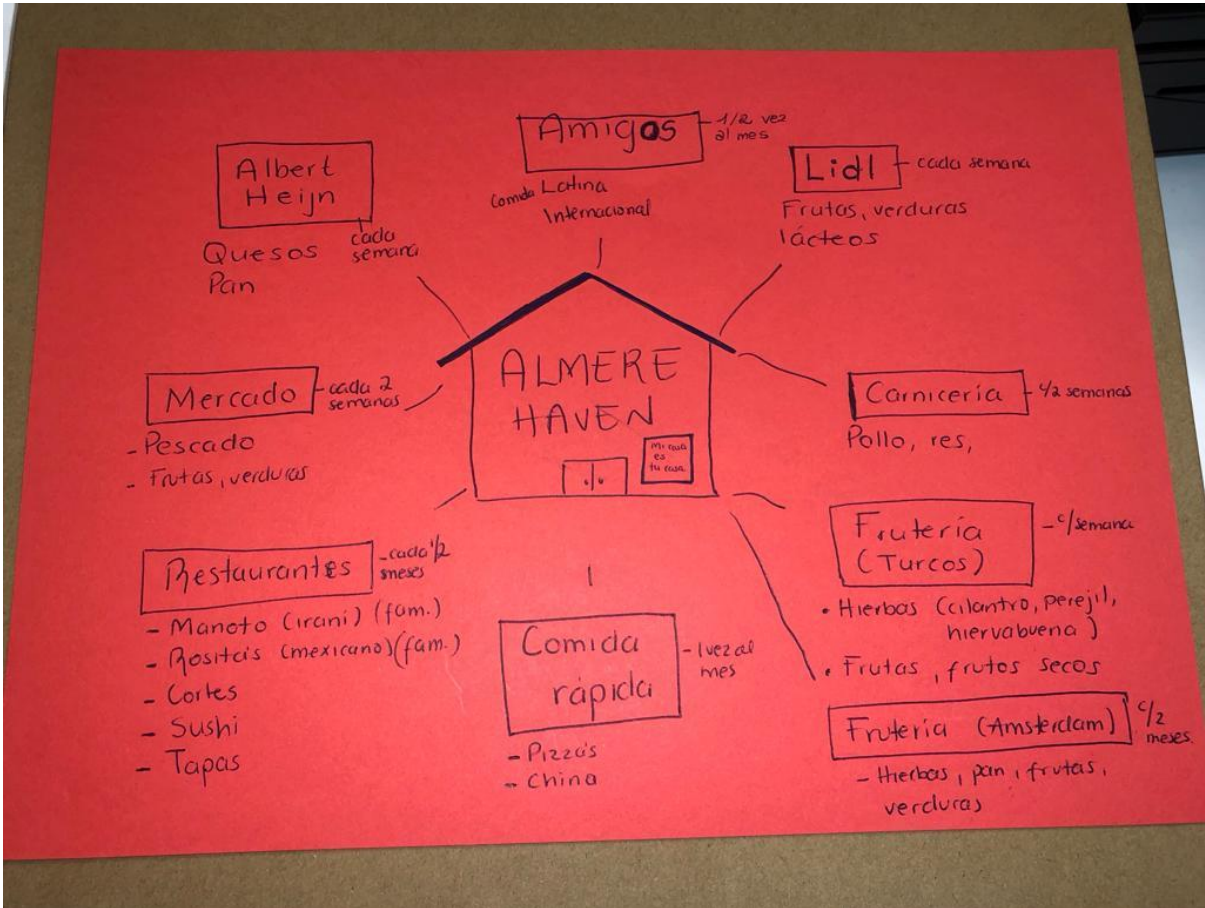 Amigos
- 1/2 vez
al mes
Comida Latina
Internacional
Albert
Heijn
cada
semana
Quesos
Pan
Lidl
- cada semana
Frutas, verduras
lácteos
ALMERE
HAVEN
Mi casa
es
tu casa
Mercado
- cada 2
semanas
- Pescado
- Frutas, verduras
Carnicería
- c/2 semanas
Pollo, res,
Restaurantes
- cada 1/2
meses
- Manoto (iraní) (fam.)
- Rositas (mexicano) (fam.)
- Cortes
- Sushi
- Tapas
Comida
rápida
- 1 vez al
mes
- Pizzas
- China
Frutería
(Turcos)
- c/semana
• Hierbas (cilantro, perejil,
hiervabuena)
• Frutas, frutos secos
Frutería (Amsterdam)
c/2
meses.
- Hierbas, pan, frutas,
verduras